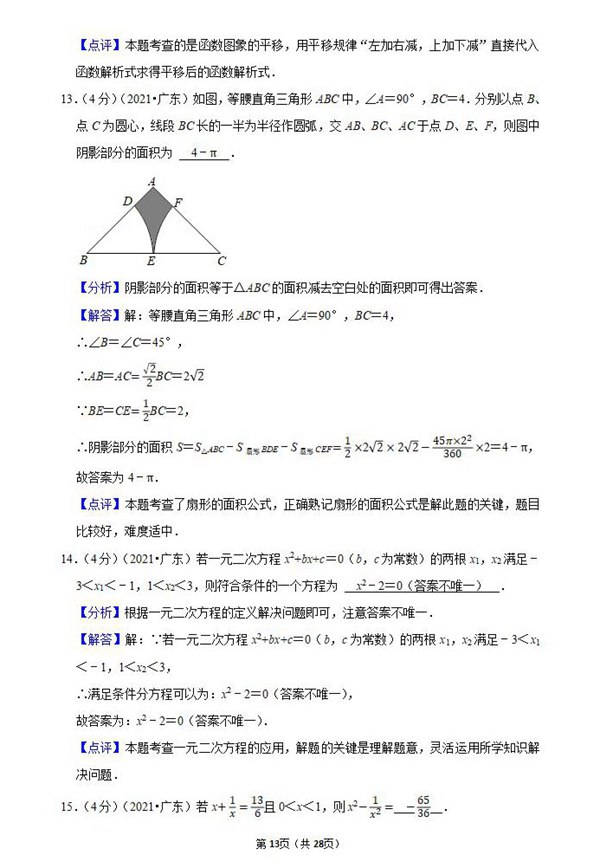 【点评】本题考查的是函数图象的平移，用平移规律“左加右减，上加下减”直接代入
函数解析式求得平移后的函数解析式．
13.（4分）（2021•广东）如图，等腰直角三角形ABC中，∠A＝90°，BC＝4．分别以点B、
点C为圆心，线段BC长的一半为半径作圆弧，交AB、BC、AC于点D、E、F，则图中
阴影部分的面积为 4﹣π ．
A
D
F
B
E
C
【分析】阴影部分的面积等于△ABC的面积减去空白处的面积即可得出答案．
【解答】解：等腰直角三角形ABC中，∠A＝90°，BC＝4，
∴∠B＝∠C＝45°，
∴AB＝AC＝√2/2BC＝2√2
∵BE＝CE＝1/2BC＝2，
∴阴影部分的面积S＝S△ABC﹣S扇形BDE﹣S扇形CEF＝1/2×2√2×2√2﹣45π×2²/360×2＝4﹣π，
故答案为4﹣π．
【点评】本题考查了扇形的面积公式，正确熟记扇形的面积公式是解此题的关键，题目
比较好，难度适中．
14.（4分）（2021•广东）若一元二次方程x²+bx+c＝0（b，c为常数）的两根x₁，x₂满足﹣
3＜x₁＜﹣1，1＜x₂＜3，则符合条件的一个方程为 x²﹣2＝0（答案不唯一） ．
【分析】根据一元二次方程的定义解决问题即可，注意答案不唯一．
【解答】解：∵若一元二次方程x²+bx+c＝0（b，c为常数）的两根x₁，x₂满足﹣3＜x₁
＜﹣1，1＜x₂＜3，
∴满足条件分方程可以为：x²﹣2＝0（答案不唯一），
故答案为：x²﹣2＝0（答案不唯一）．
【点评】本题考查一元二次方程的应用，解题的关键是理解题意，灵活运用所学知识解
决问题．
15.（4分）（2021•广东）若x+1/x＝13/6且0＜x＜1，则x²﹣1/x²＝ ﹣65/36 ．
第13页（共28页）